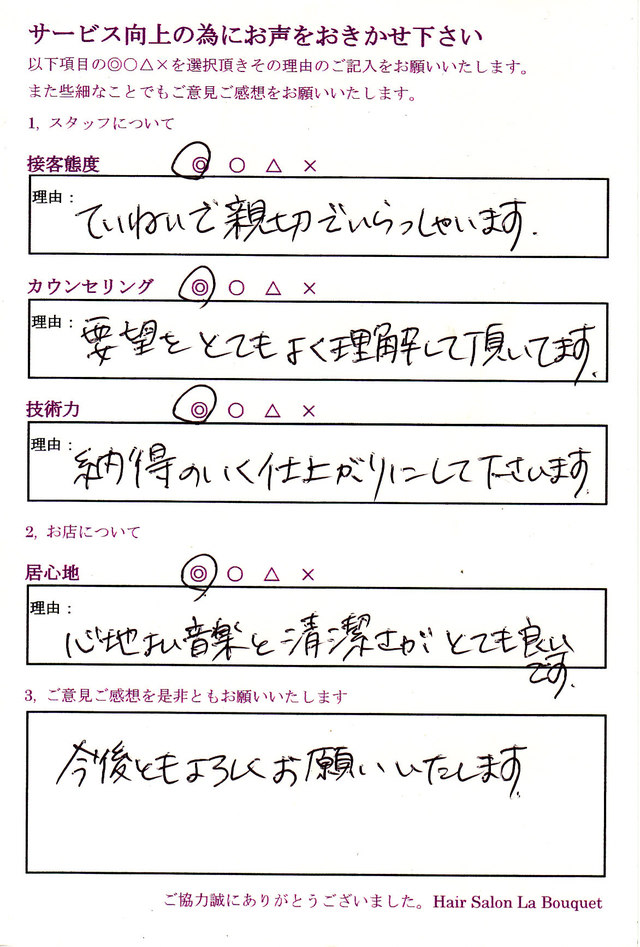 サービス向上の為にお声をおきかせ下さい
以下項目の◎○△×を選択頂きその理由のご記入をお願いいたします。
また些細なことでもご意見ご感想をお願いいたします。
1, スタッフについて
接客態度 ◎ ○ △ ×
理由：
ていねいで親切でいらっしゃいます.
カウンセリング ◎ ○ △ ×
理由：
要望をとてもよく理解して頂いてます.
技術力 ◎ ○ △ ×
理由：
納得のいく仕上がりにして下さいます
2, お店について
居心地 ◎ ○ △ ×
理由：
心地よい音楽と清潔さがとても良い
です.
3, ご意見ご感想を是非ともお願いいたします
今後ともよろしくお願いいたします.
ご協力誠にありがとうございました。Hair Salon La Bouquet